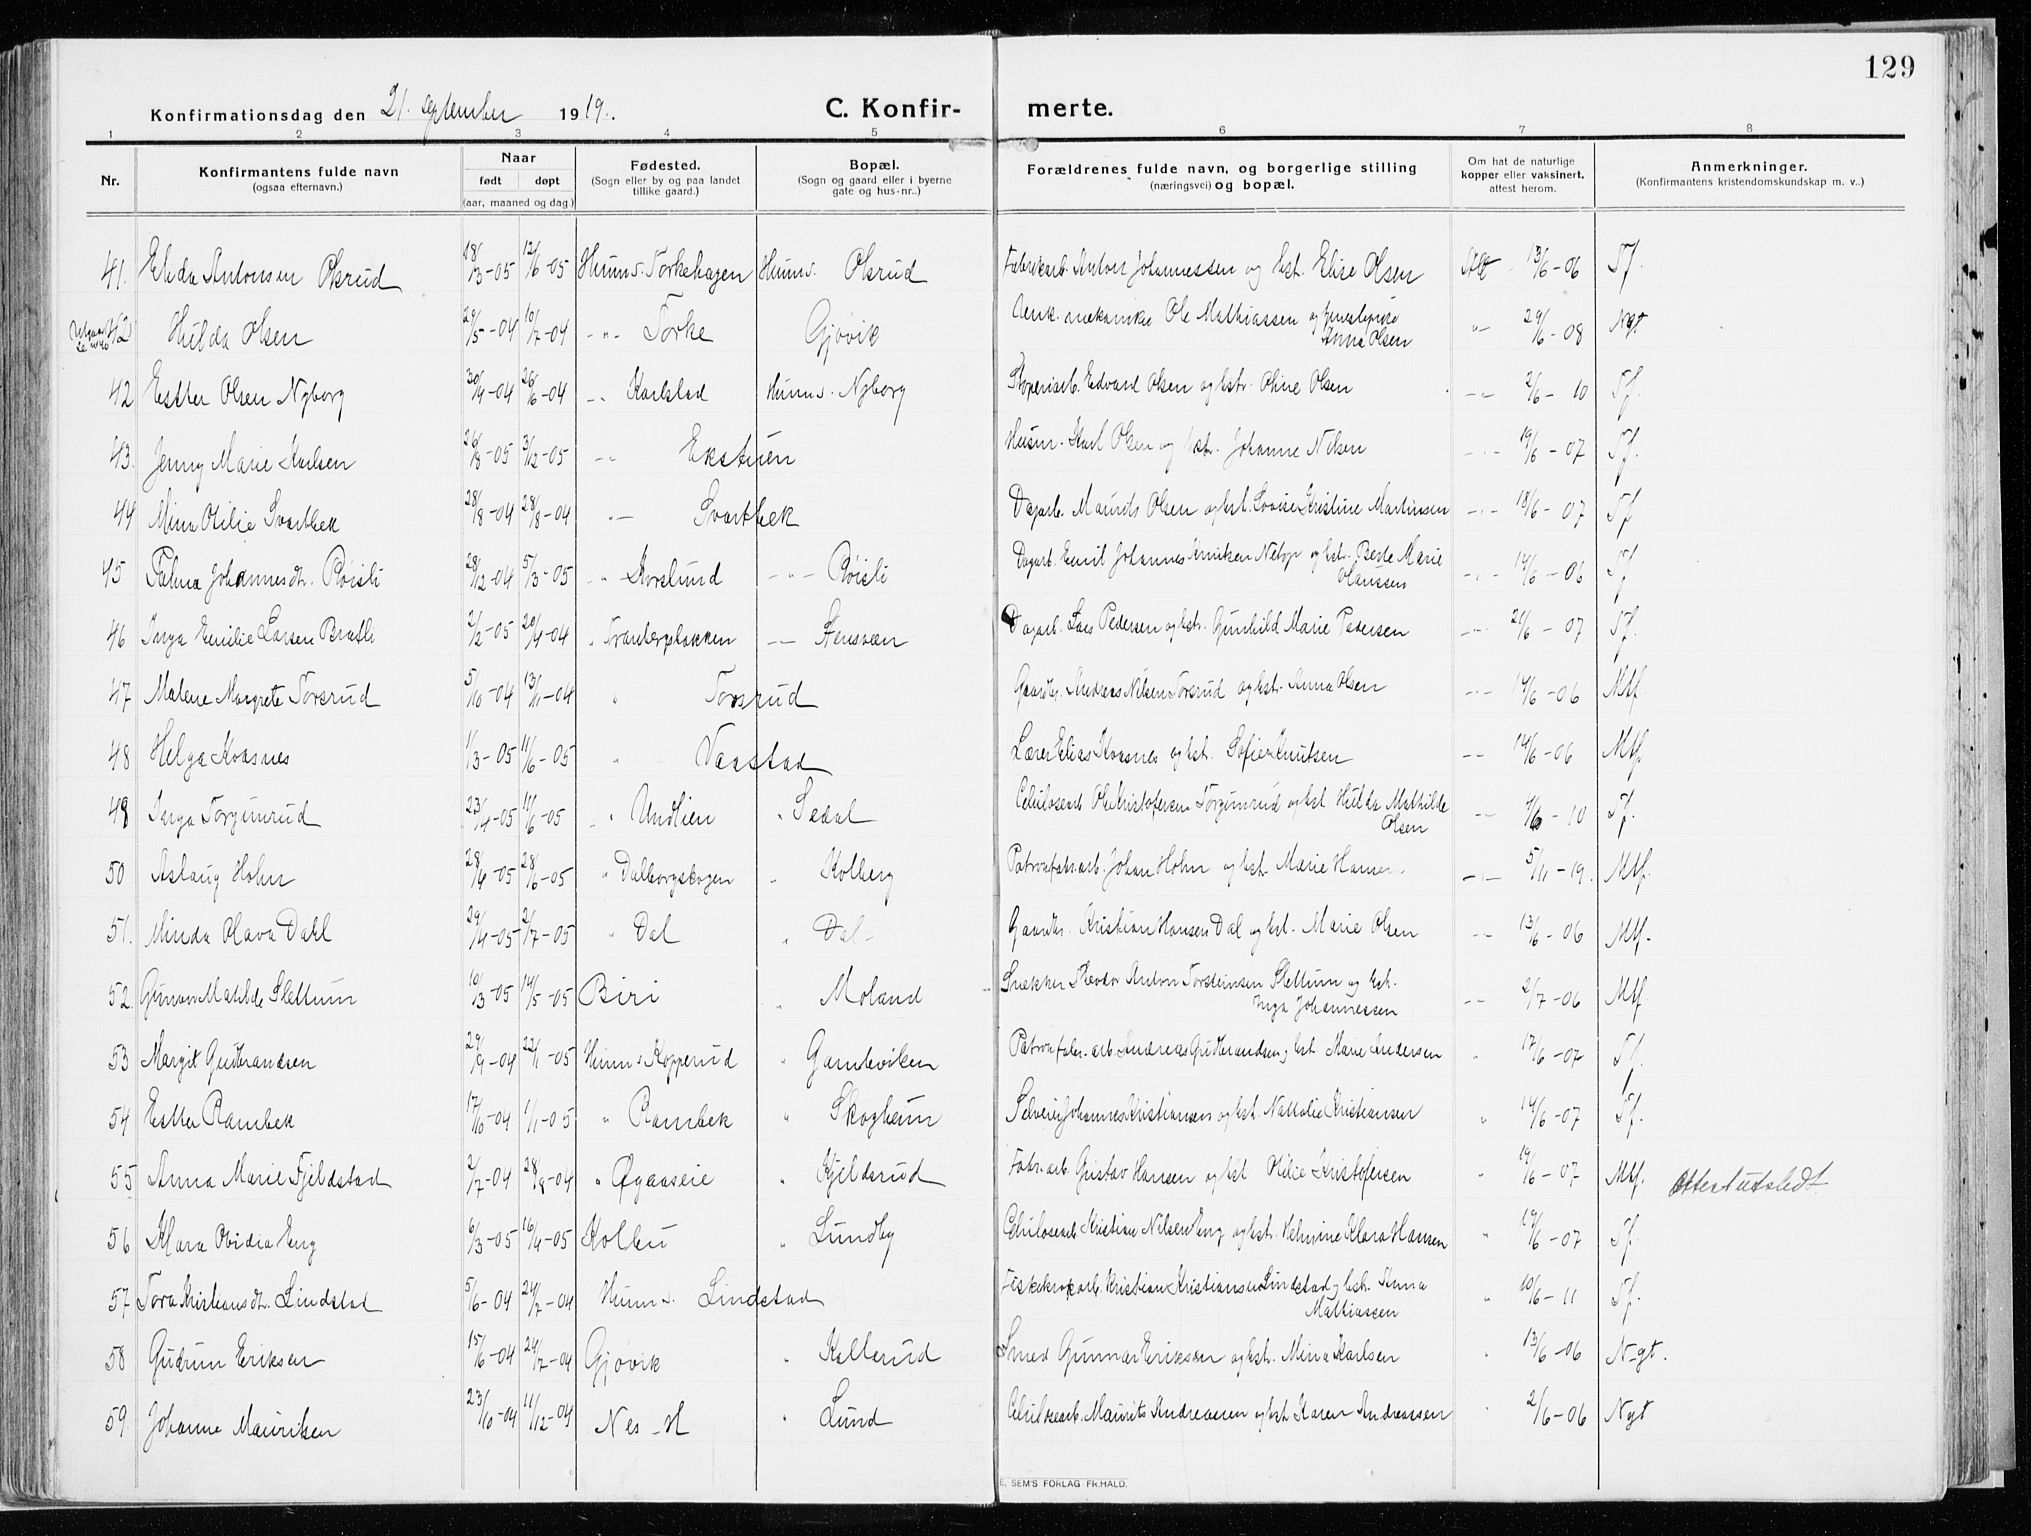 129
Konfirmationsdag den 21. september 1919.
C. Konfirmerte.
1 2 3 4 5 6 7 8
Nr.
Konfirmantens fulde navn
(ogsaa efternavn.)
Naar
født døpt
(aar, maaned og dag.)
Fødested.
(Sogn eller by og paa landet
tillike gaard.)
Bopæl.
(Sogn og gaard eller i byerne
gate og hus-nr..)
Forældrenes fulde navn, og borgerlige stilling
(næringsvei) og bopæl.
Om hat de naturlige
kopper eller vaksinert,
attest herom.
Anmerkninger.
(Konfirmantens kristendomskundskap m. v..)
41. Elida Antonsen Olsrud 18/3-05 12/6-05 Hunns. Torkehagen Hunns. Olsrud Fabrikarb. Anton Johannessen og hst. Elise Olsen Att. 13/6-06 Tf.
42 Hulda Olsen 29/5-04 10/7-04 -"- Torke Gjøvik Ole Mathiassen og Anna Olsen " 29/6-08 Ngt
42 Esther Olsen Nyborg 30/4-04 26/6-04 -"- Karlstad Hunns. Nyborg Støperiarb. Edvard Olsen og hst. Oline Olsen -"- 2/6-10 Tf.
43. Jenny Marie Karlsen 26/8-05 3/12-05 -"- Ekstuen Husm. Karl Olsen og hst. Johanne Nilsen -"- 19/6-07 Tf.
44 Mina Otilie Svartbek 28/8-04 28/8-04 -"- Svartbek Dagarb. Maurits Olsen og hst. Lovise Kristine Martinsen -"- 18/6-07 Tf
45 Palma Johannesdtr. Røisli 28/12-04 5/3-05 " Korslund -"- Røisli Dagarb. Emil Johannes og hst. Berte Marie Olaussen -"- 14/6-06 Tf
46 Inga Emilie Larsen Bratli 2/2-05 20/4-04 " -"- Stensveen Dagarb. Lars Pedersen og hst. Gunhild Marie Pedersen -"- 21/6-07 Tf.
47 Malene Margrete Torsrud 5/10-04 13/11-04 " Torsrud Gaardbr. Andreas Nilsen Torsrud og hst. Anna Olsen -"- 14/6-06 Mtf.
48 Helga Kvasnes 1/3-05 11/6-05 " Vaastad Lærer Elias Kvasnes og hst. Sofie Knutsen -"- 14/6-06 Mtf.
49 Inga Torgunrud 23/4-05 11/6-05 " Undlien " Sedal Celulosearb. Ole Kristofersen Torgunrud og hst. Hulda Mathilde Olsen -"- 4/6-10 Tf.
50 Aslaug Hohn 28/4-05 28/6-05 " Dalborgskogen " Kolberg Patronfabr.arb. Johan Hohn og hst. Marie Hansen -"- 5/11-19. Mtf.
51. Minda Olava Dahl 29/4-05 2/7-05 " Dal " Dal Gaardbr. Kristian Hansen Dal og hst. Marie Olsen -"- 13/6-06 Mtf.
52. Gunvor Matilde Slettum 10/3-05 14/5-05 Biri " Moland Snekker Teodor Anton Torsteinsen Slettum og hst. Inga Johannessen -"- 2/7-06 Mtf
53 Margit Gudbrandsen 29/9-04 22/1-05 Hunns. Kopperud " Gamleviken Patronfabr.arb. Andreas Gudbrandsen og hst. Marie Andersen " 17/6-07 Tf.
54 Esther Rambek 17/10-04 1/1-05 " Rambek " Skogheim Selveier Johannes Kristiansen og hst. Nathalie Kristiansen " 14/6-07 Tf.
55 Anna Marie Fjeldstad 2/7-04 28/8-04 " Øgaaseie " Kjeldsrud Fabr.arb. Gustav Hansen og hst. Hilie Kristofersen " 19/6-07 Mtf. Attest utstedt
56 Klara Ovidia Eng 6/3-05 16/4-05 Kolbu " Lundby Celulosearb. Kristian Nilsen Eng og hst. Helmine Klara Hansen " 19/6-07 Tf.
57 Tora Kristiansdtr. Lindstad 5/6-04 24/7-04 Hunns. Lindstad Kristian Kristiansen Lindstad og hst. Anna Mathiassen " 10/6-11 Tf.
58 Gudrun Eriksen 15/6-04 24/7-04 Gjøvik " Kallerud Smed Gunnar Eriksen og hst. Mina Karlsen " 13/6-06 Ngt.
59. Johanne Mauritsen 23/10-04 11/12-04 Nes H " Lund Celulosearb. Maurits Andreassen og hst. Karen Andreassen " 2/6-06 Ngt
E. SEM'S FORLAG FR.HALD.